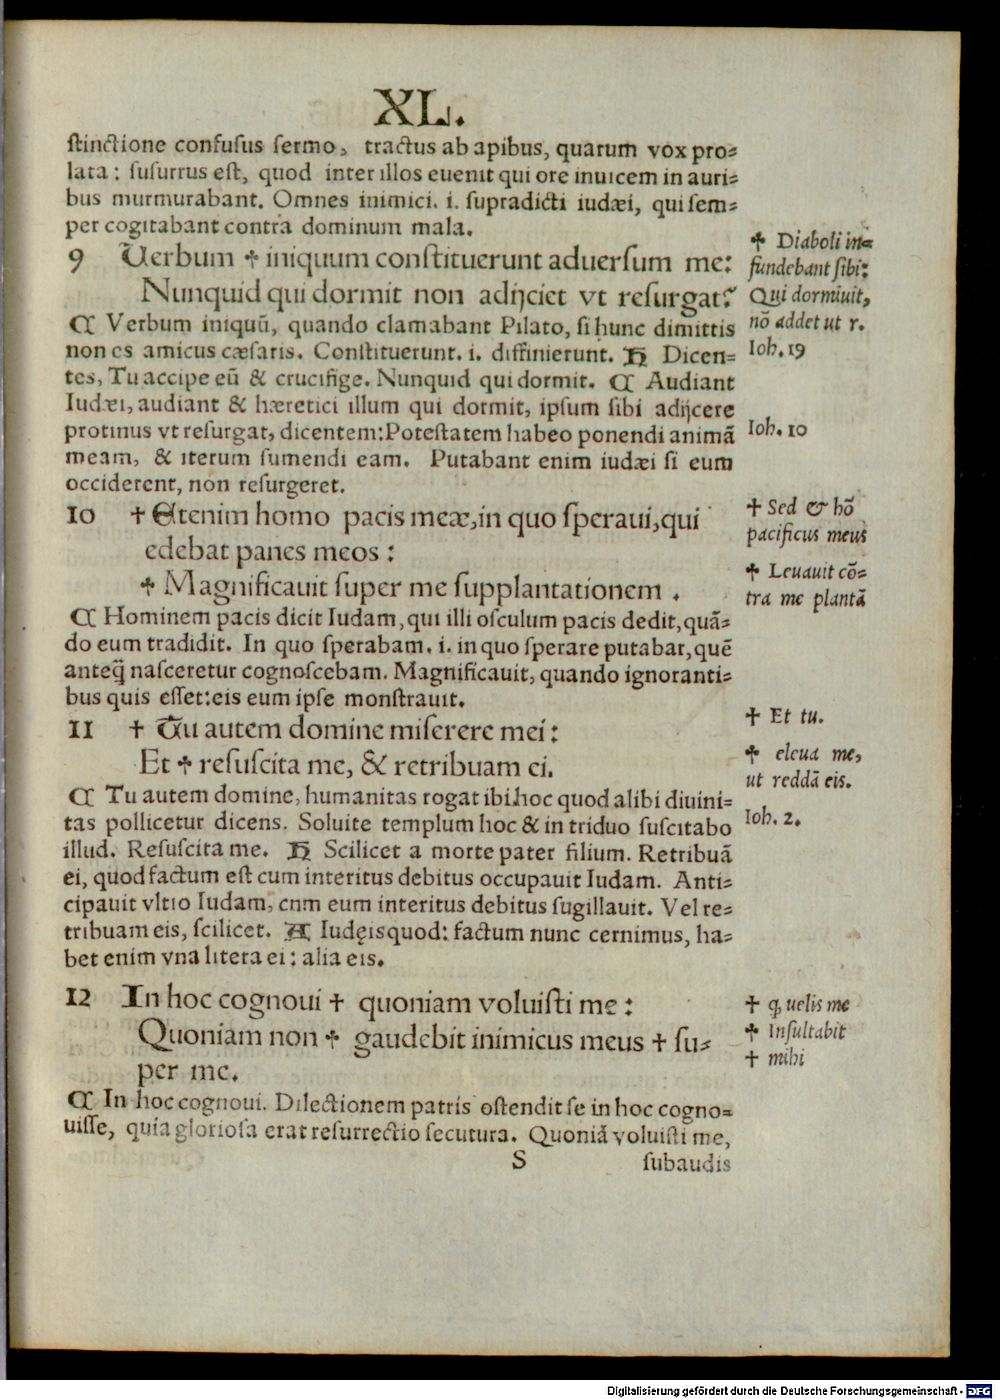 XL.
ſtinctione confuſus ſermo, tractus ab apibus, quarum vox pro⸗
lata: ſuſurrus eſt, quod inter illos evenit qui ore inuicem in auri⸗
bus murmurabant. Omnes inimici. i. ſupradicti iudæi, qui ſem⸗
per cogitabant contra dominum mala.
9 Uerbum ✢ iniquum conſtituerunt aduerſum me:
Nunquid qui dormit non adijciet vt reſurgat?
¶ Verbum iniquũ, quando clamabant Pilato, ſi hunc dimittis
non es amicus cæſaris. Conſtituerunt. i. diffinierunt. H Dicen⸗
tes, Tu accipe eũ & crucifige. Nunquid qui dormit. ¶ Audiant
Iudæi, audiant & hæretici illum qui dormit, ipſum ſibi adijcere
protinus vt reſurgat, dicentem: Poteſtatem habeo ponendi animã
meam, & iterum ſumendi eam. Putabant enim iudæi ſi eum
occiderent, non reſurgeret.
10 ✝ Etenim homo pacis meæ, in quo ſperaui, qui
edebat panes meos:
✢ Magnificauit ſuper me ſupplantationem.
¶ Hominem pacis dicit Iudam, qui illi oſculum pacis dedit, quã⸗
do eum tradidit. In quo ſperabam. i. in quo ſperare putabar, quẽ
anteq̃ naſceretur cognoſcebam. Magnificauit, quando ignoranti⸗
bus quis eſſet: eis eum ipſe monſtrauit.
11 ✝ Tu autem domine miſerere mei:
Et ✢ reſuſcita me, & retribuam ei.
¶ Tu autem domine, humanitas rogat ibi. hoc quod alibi diuini⸗
tas pollicetur dicens. Soluite templum hoc & in triduo ſuſcitabo
illud. Reſuſcita me. H Scilicet a morte pater filium. Retribuã
ei, quod factum eſt cum interitus debitus occupauit Iudam. Anti⸗
cipauit vltio Iudam, cnm eum interitus debitus ſugillauit. Vel re⸗
tribuam eis, ſcilicet. A Iudęis quod: factum nunc cernimus, ha⸗
bet enim vna litera ei: alia eis.
12 In hoc cognoui ✝ quoniam voluiſti me:
Quoniam non ✢ gaudebit inimicus meus ✝ ſu⸗
per me.
¶ In hoc cognoui. Dilectionem patris oſtendit ſe in hoc cogno⸗
uiſſe, quia glorioſa erat reſurrectio ſecutura. Quoniã voluiſti me,
S ſubaudis
✢ Diaboli in⸗
fundebant ſibi:
Qui dormiuit,
nõ addet ut r.
Ioh. 19
Ioh. 10
✝ Sed & hõ
pacificus meus
✢ Leuauit cõ⸗
tra me plantã
✝ Et tu.
✢ eleua me,
ut reddã eis.
Ioh. 2.
✝ ꝙ uelis me
✢ Inſultabit
✝ mihi
Digitalisierung gefördert durch die Deutsche Forschungsgemeinschaft - DFG